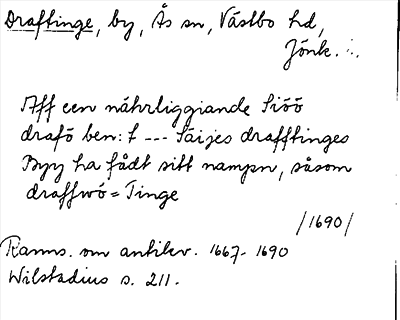 Draftinge, by, Ås sn, Västbo hd,
Jönk.
Aff een nährliggiande Siöö
drafö ben: t --- Säijes drafftinges
Byy ha fådt sitt nampn, såsom
draffwö = Tinge
/1690/
Ranns. om antikv. 1667-1690
Wilstadius s. 211.